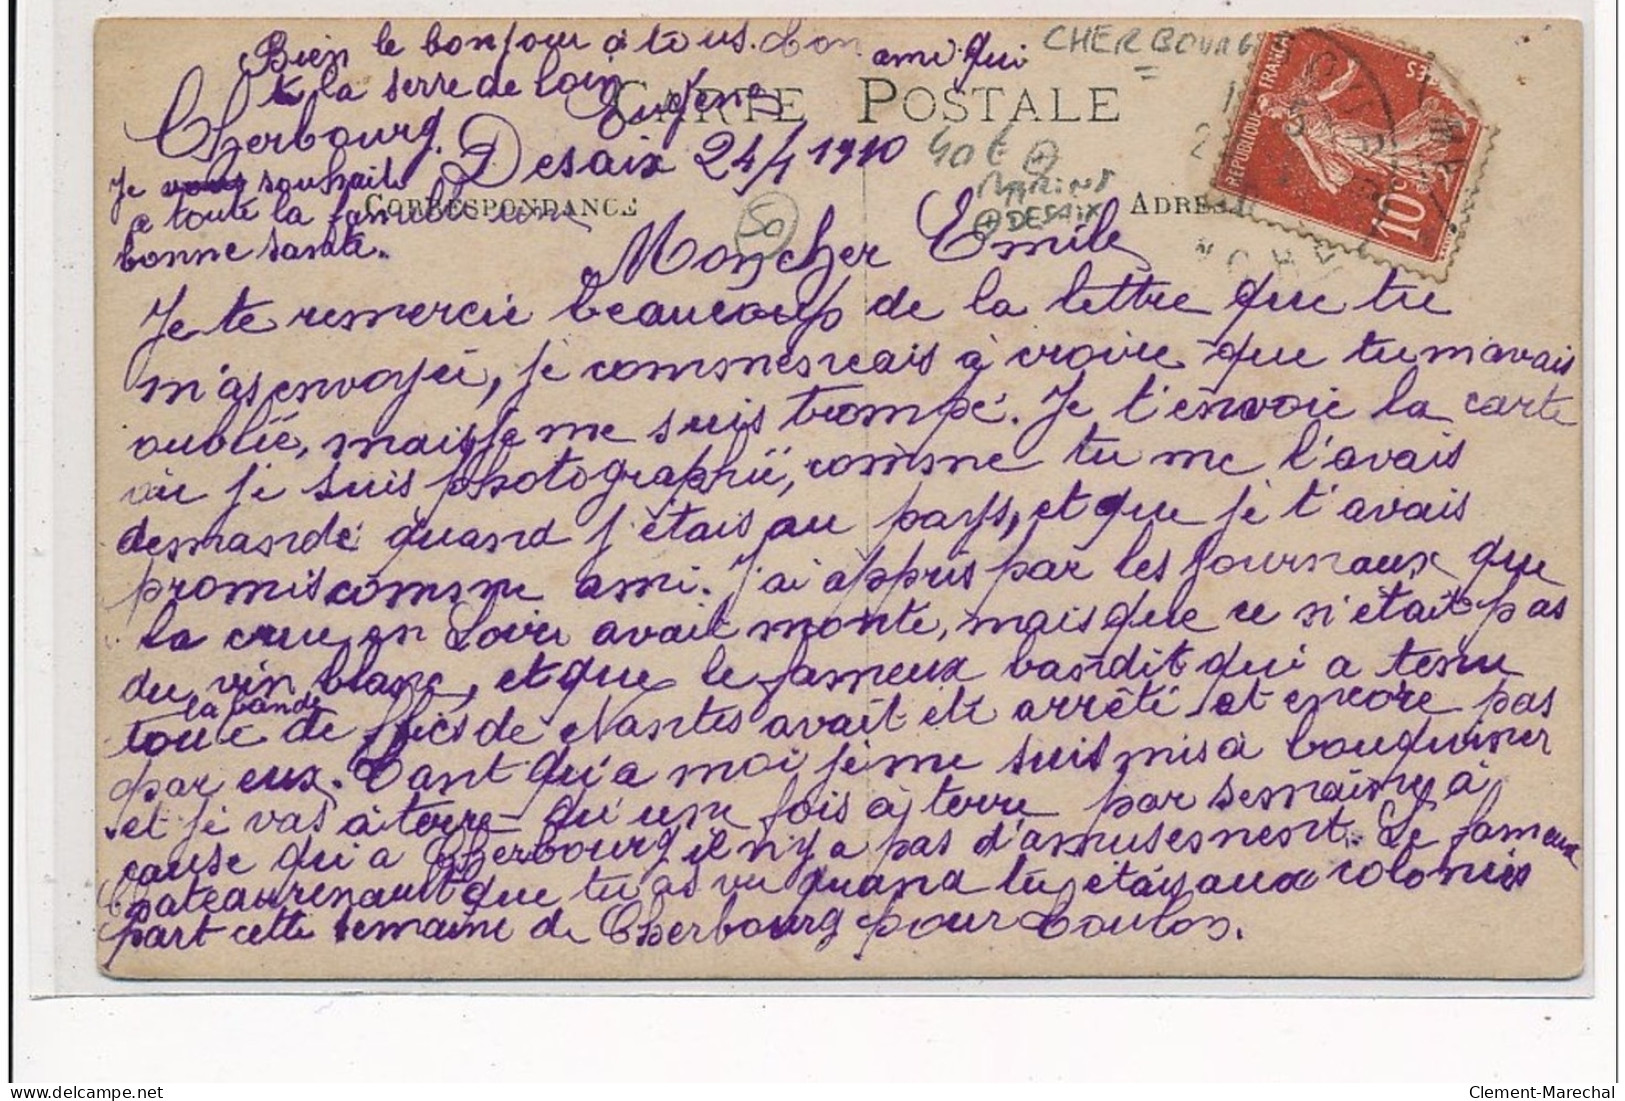 Bien le bonjour à tous. Ton ami qui
te la serre de loin
Eugène
CARTE POSTALE
CHERBOURG
Cherbourg. Desaix 24/1 1910
Je vous souhaite
a toute la famille une
bonne santé.
CORRESPONDANCE
50
40 €
MARINS
DESAIX
ADRES
REPUBLIQUE FRANÇAI
10c
Mon cher Emile
Je te remercie beaucoup de la lettre que tu
m'as envoyée, je commencais à croire que tu m'avais
oublié, mais je me suis trompé. Je t'envoie la carte
où je suis photographié, comme tu me l'avais
demandé quand j'étais au pays, et que je t'avais
promis comme ami. J'ai appris par les journaux que
la crue en Loire avait monté, mais que ce n'était pas
du vin blanc, et que le fameux bandit qui a tenu
la bande
toute de flics de Nantes avait été arrêté et encore pas
par eux. Tant qu'a moi je me suis mis à bouquiner
et je vas à terre qu'une fois à terre par semaine à
cause qui a Cherbourg il n'y a pas d'amusement. Le fameux
Chateaurenault que tu as vu quand tu étais aux colonies
part cette semaine de Cherbourg pour Toulon.
Clement-Marechal